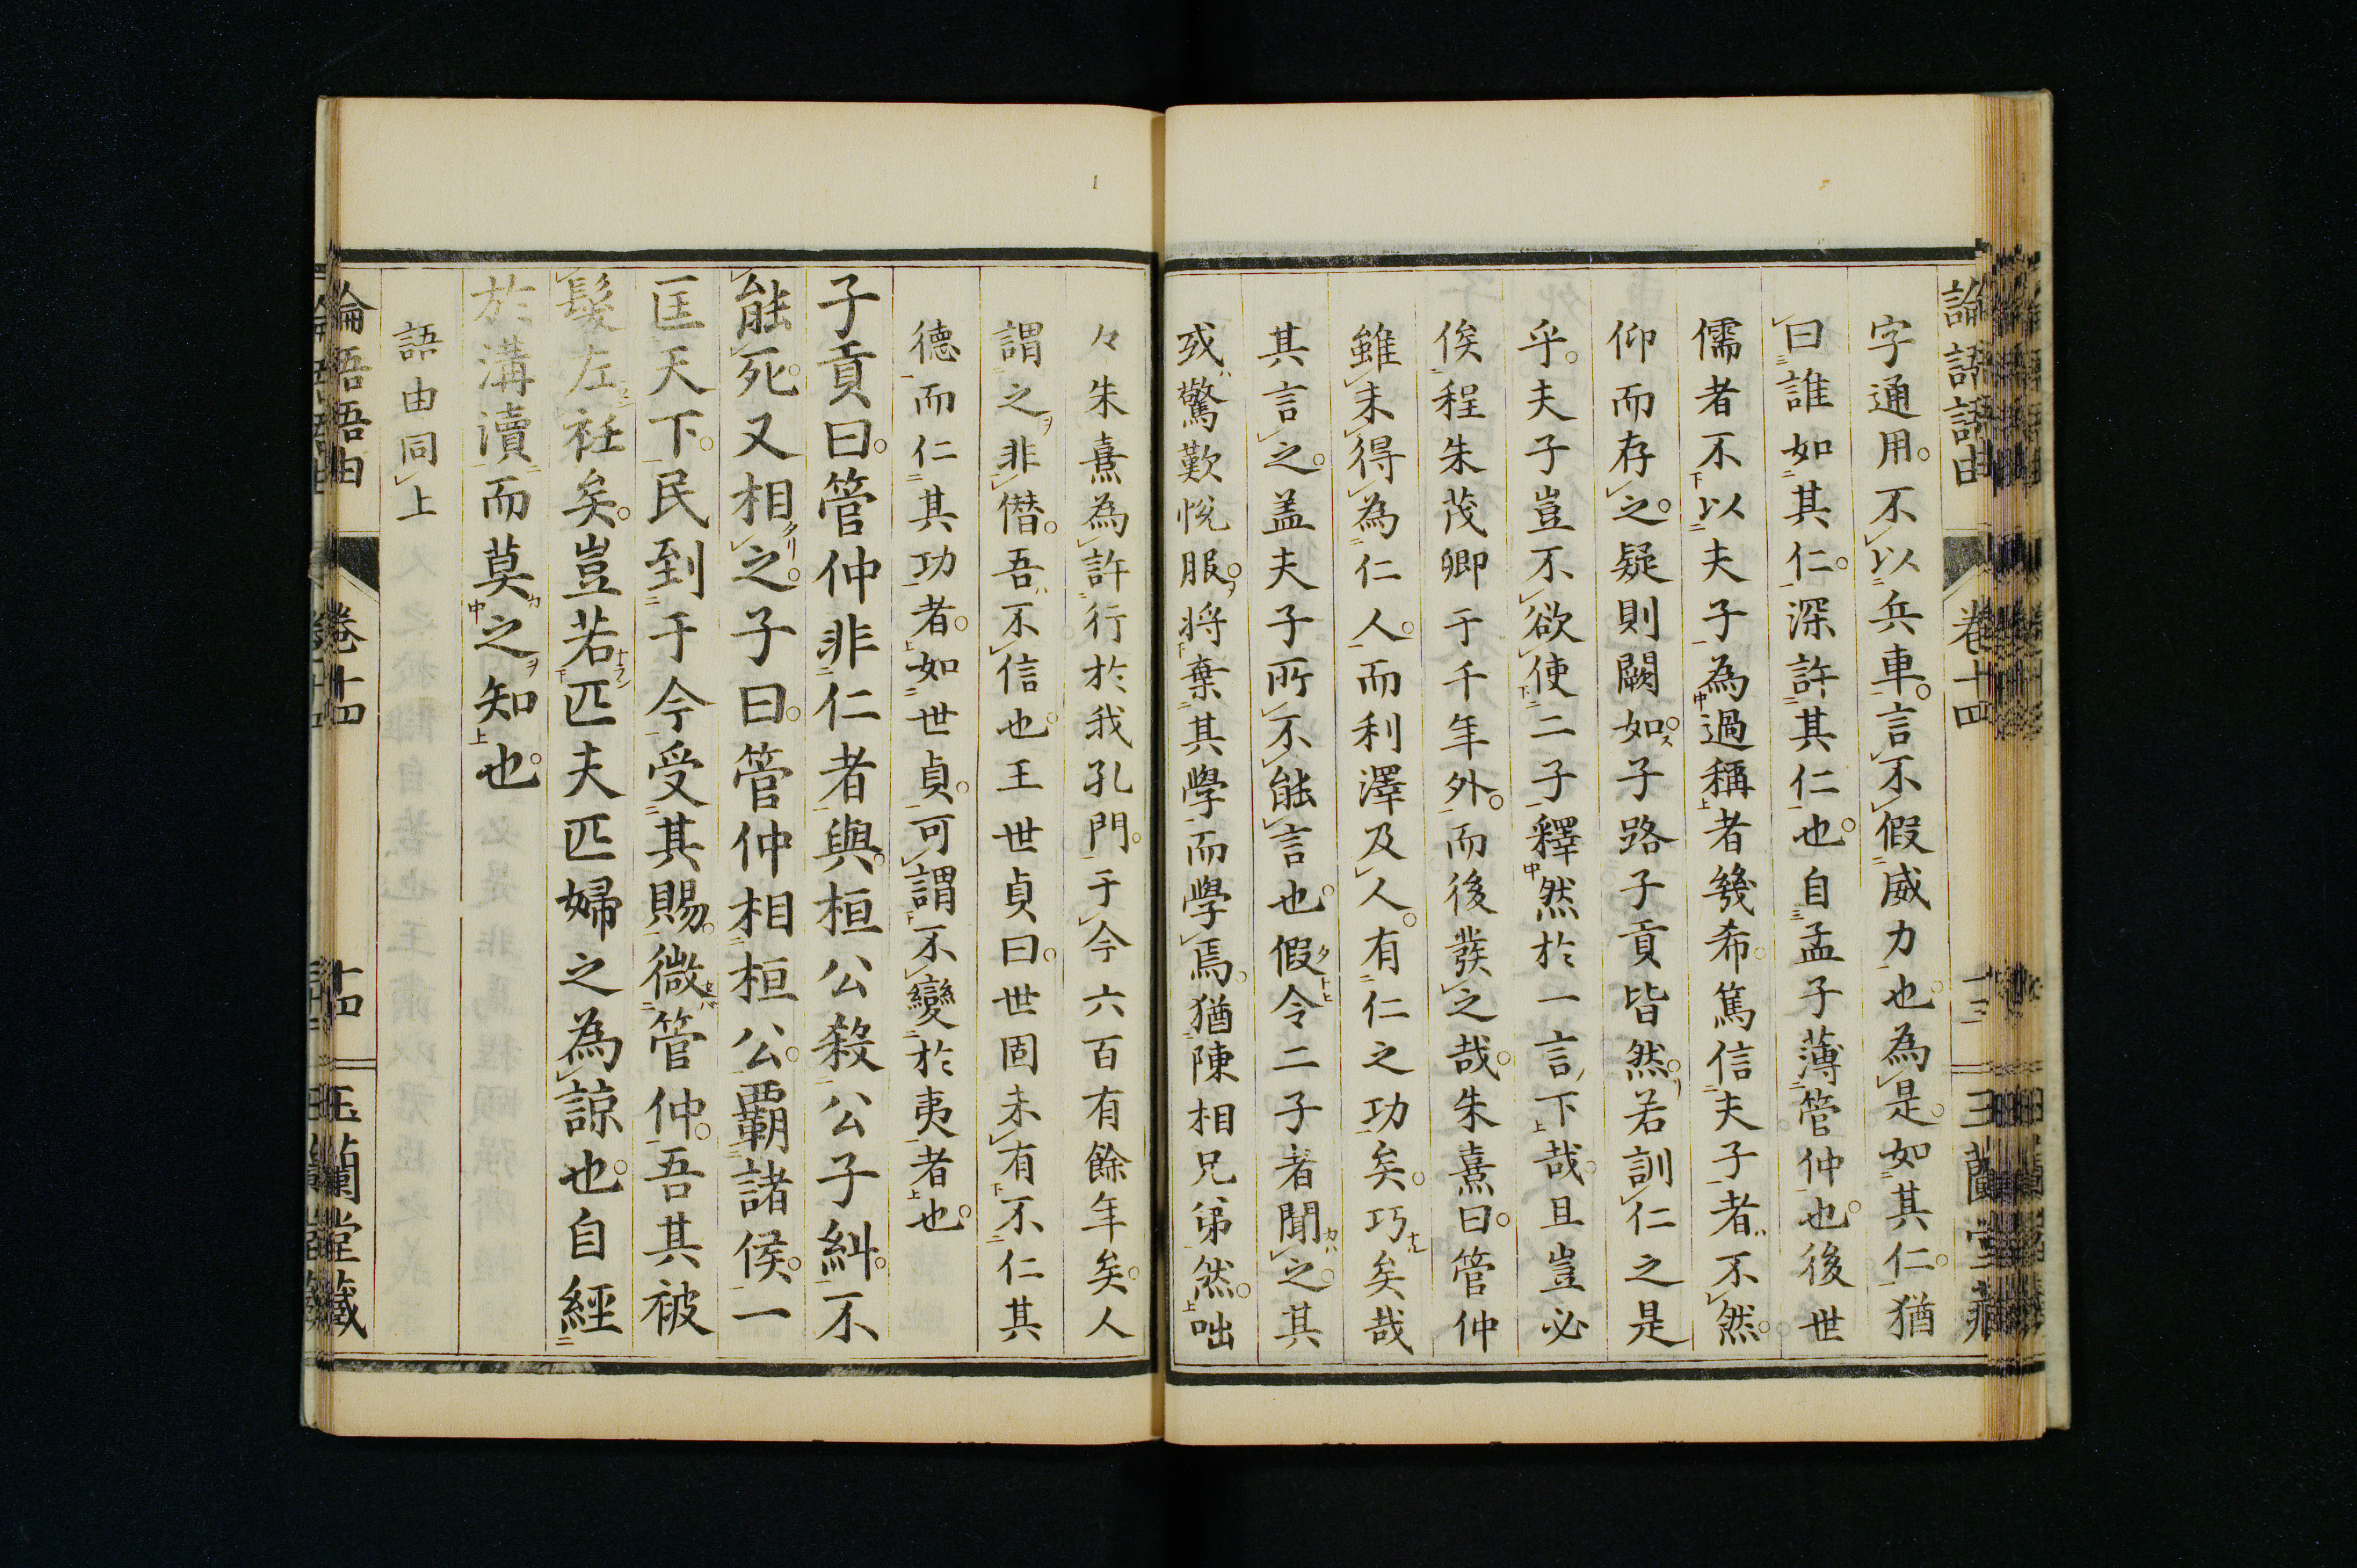 論語語由 卷十四 十三 玉蘭堂藏
字通用。不以兵車。言不假威力也。為是。如其仁。猶
曰誰如其仁。深許其仁也。自孟子薄管仲也。後世
儒者不以夫子為過稱者幾希。篤信夫子者不然。
仰而存之。疑則闕如。子路子貢皆然。若訓仁之是
乎。夫子豈不欲使二子釋然於一言下哉。且豈必
俟程朱茂卿于千年外。而後發之哉。朱熹曰。管仲
雖未得為仁人。而利澤及人。有仁之功矣。巧矣哉
其言之。盖夫子所不能言也。假令二子者聞之。其
或驚歎悅服。將棄其學而學焉。猶陳相兄弟然。咄
々朱熹為許行於我孔門。于今六百有餘年矣。人
謂之非僭。吾不信也。王世貞曰。世固未有不仁其
德而仁其功者。如世貞。可謂不變於夷者也。
子貢曰。管仲非仁者與。桓公殺公子糾。不
能死。又相之。子曰。管仲相桓公。霸諸侯。一
匡天下。民到于今受其賜。微管仲。吾其被
髮左衽矣。豈若匹夫匹婦之為諒也。自經
於溝瀆而莫之知也。
語由同上
論語語由 卷十四 十四 玉蘭堂藏